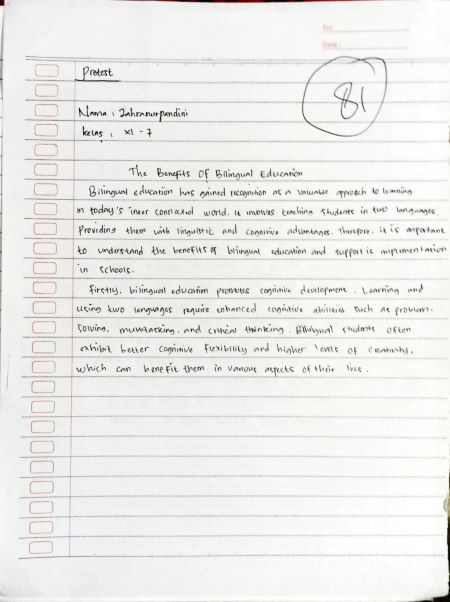 No.
Date :
81
Pretest
Nama : Zahranurpandini
kelas : XI - 7
The Benefits Of Bilingual Education
Bilingual education has gained recognition as a valuable approach to learning
in today's inter connected world. it involves teaching students in two languages,
Providing them with linguistic and cognitive advantages. Therefore, it is important
to understand the benefits of bilingual education and support is implementation
in schools.
Firstly, bilingual education promotes cognitive development. Learning and
using two languages require enhanced cognitive abilities such as problem-
solving, multitasking, and critical thinking. Bilingual students often
exhibit better cognitive flexibility and higher levels of creativity,
which can benefit them in various aspects of their lives.